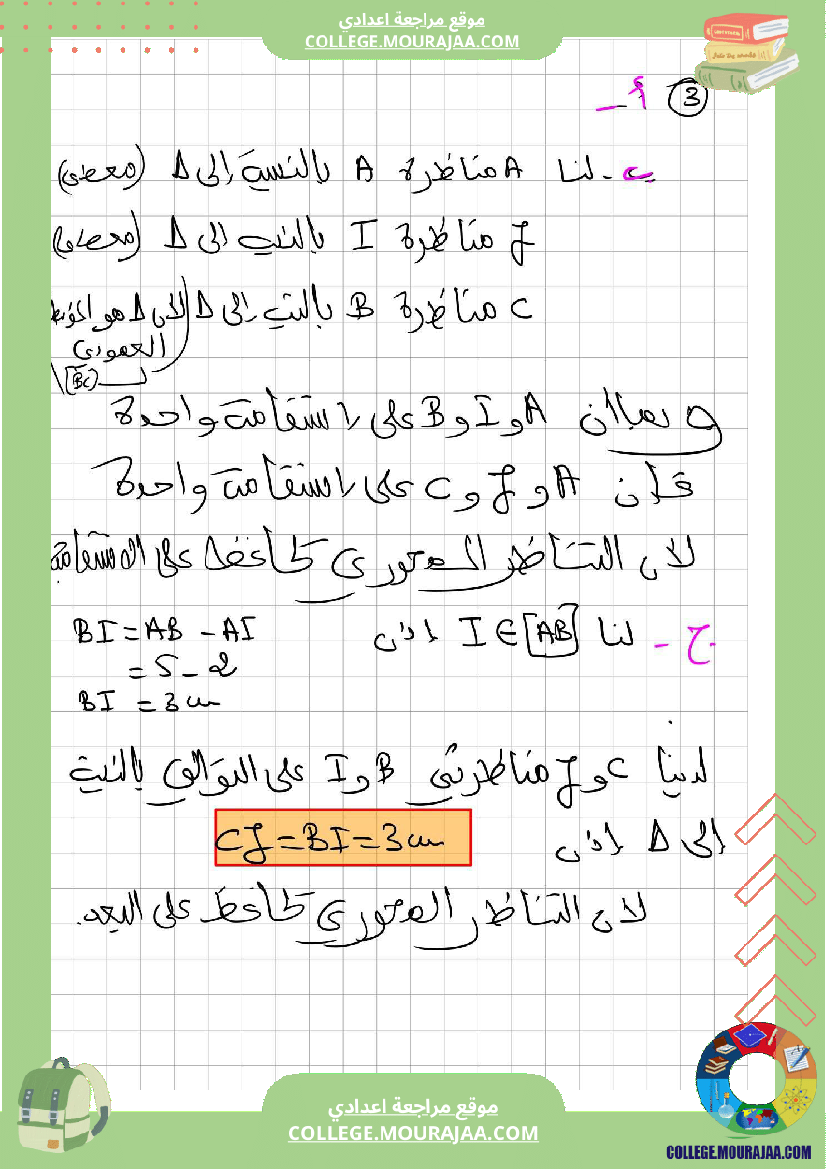 موقع مراجعة اعدادي
COLLEGE.MOURAJAA.COM
③ أ -
ب - لنا A مناظرة A بالنسبة إلى Δ (معطى)
J مناظرة I بالنسبة إلى Δ (معطى)
C مناظرة B بالنسبة إلى Δ (لأن Δ هو الموسط
العمودي
لـ [BC])
وبما أن A و I و B على استقامة واحدة
فإن A و J و C على استقامة واحدة
لأن التناظر المحوري يحافظ على الاستقامة
ج - لنا I ∈ [AB] اذن BI = AB - AI
= 5 - 2
BI = 3 cm
لدينا C و J مناظرتي B و I على التوالي بالنسبة
إلى Δ اذن CJ = BI = 3 cm
لأن التناظر المحوري يحافظ على البعد.
موقع مراجعة اعدادي
COLLEGE.MOURAJAA.COM
COLLEGE.MOURAJAA.COM